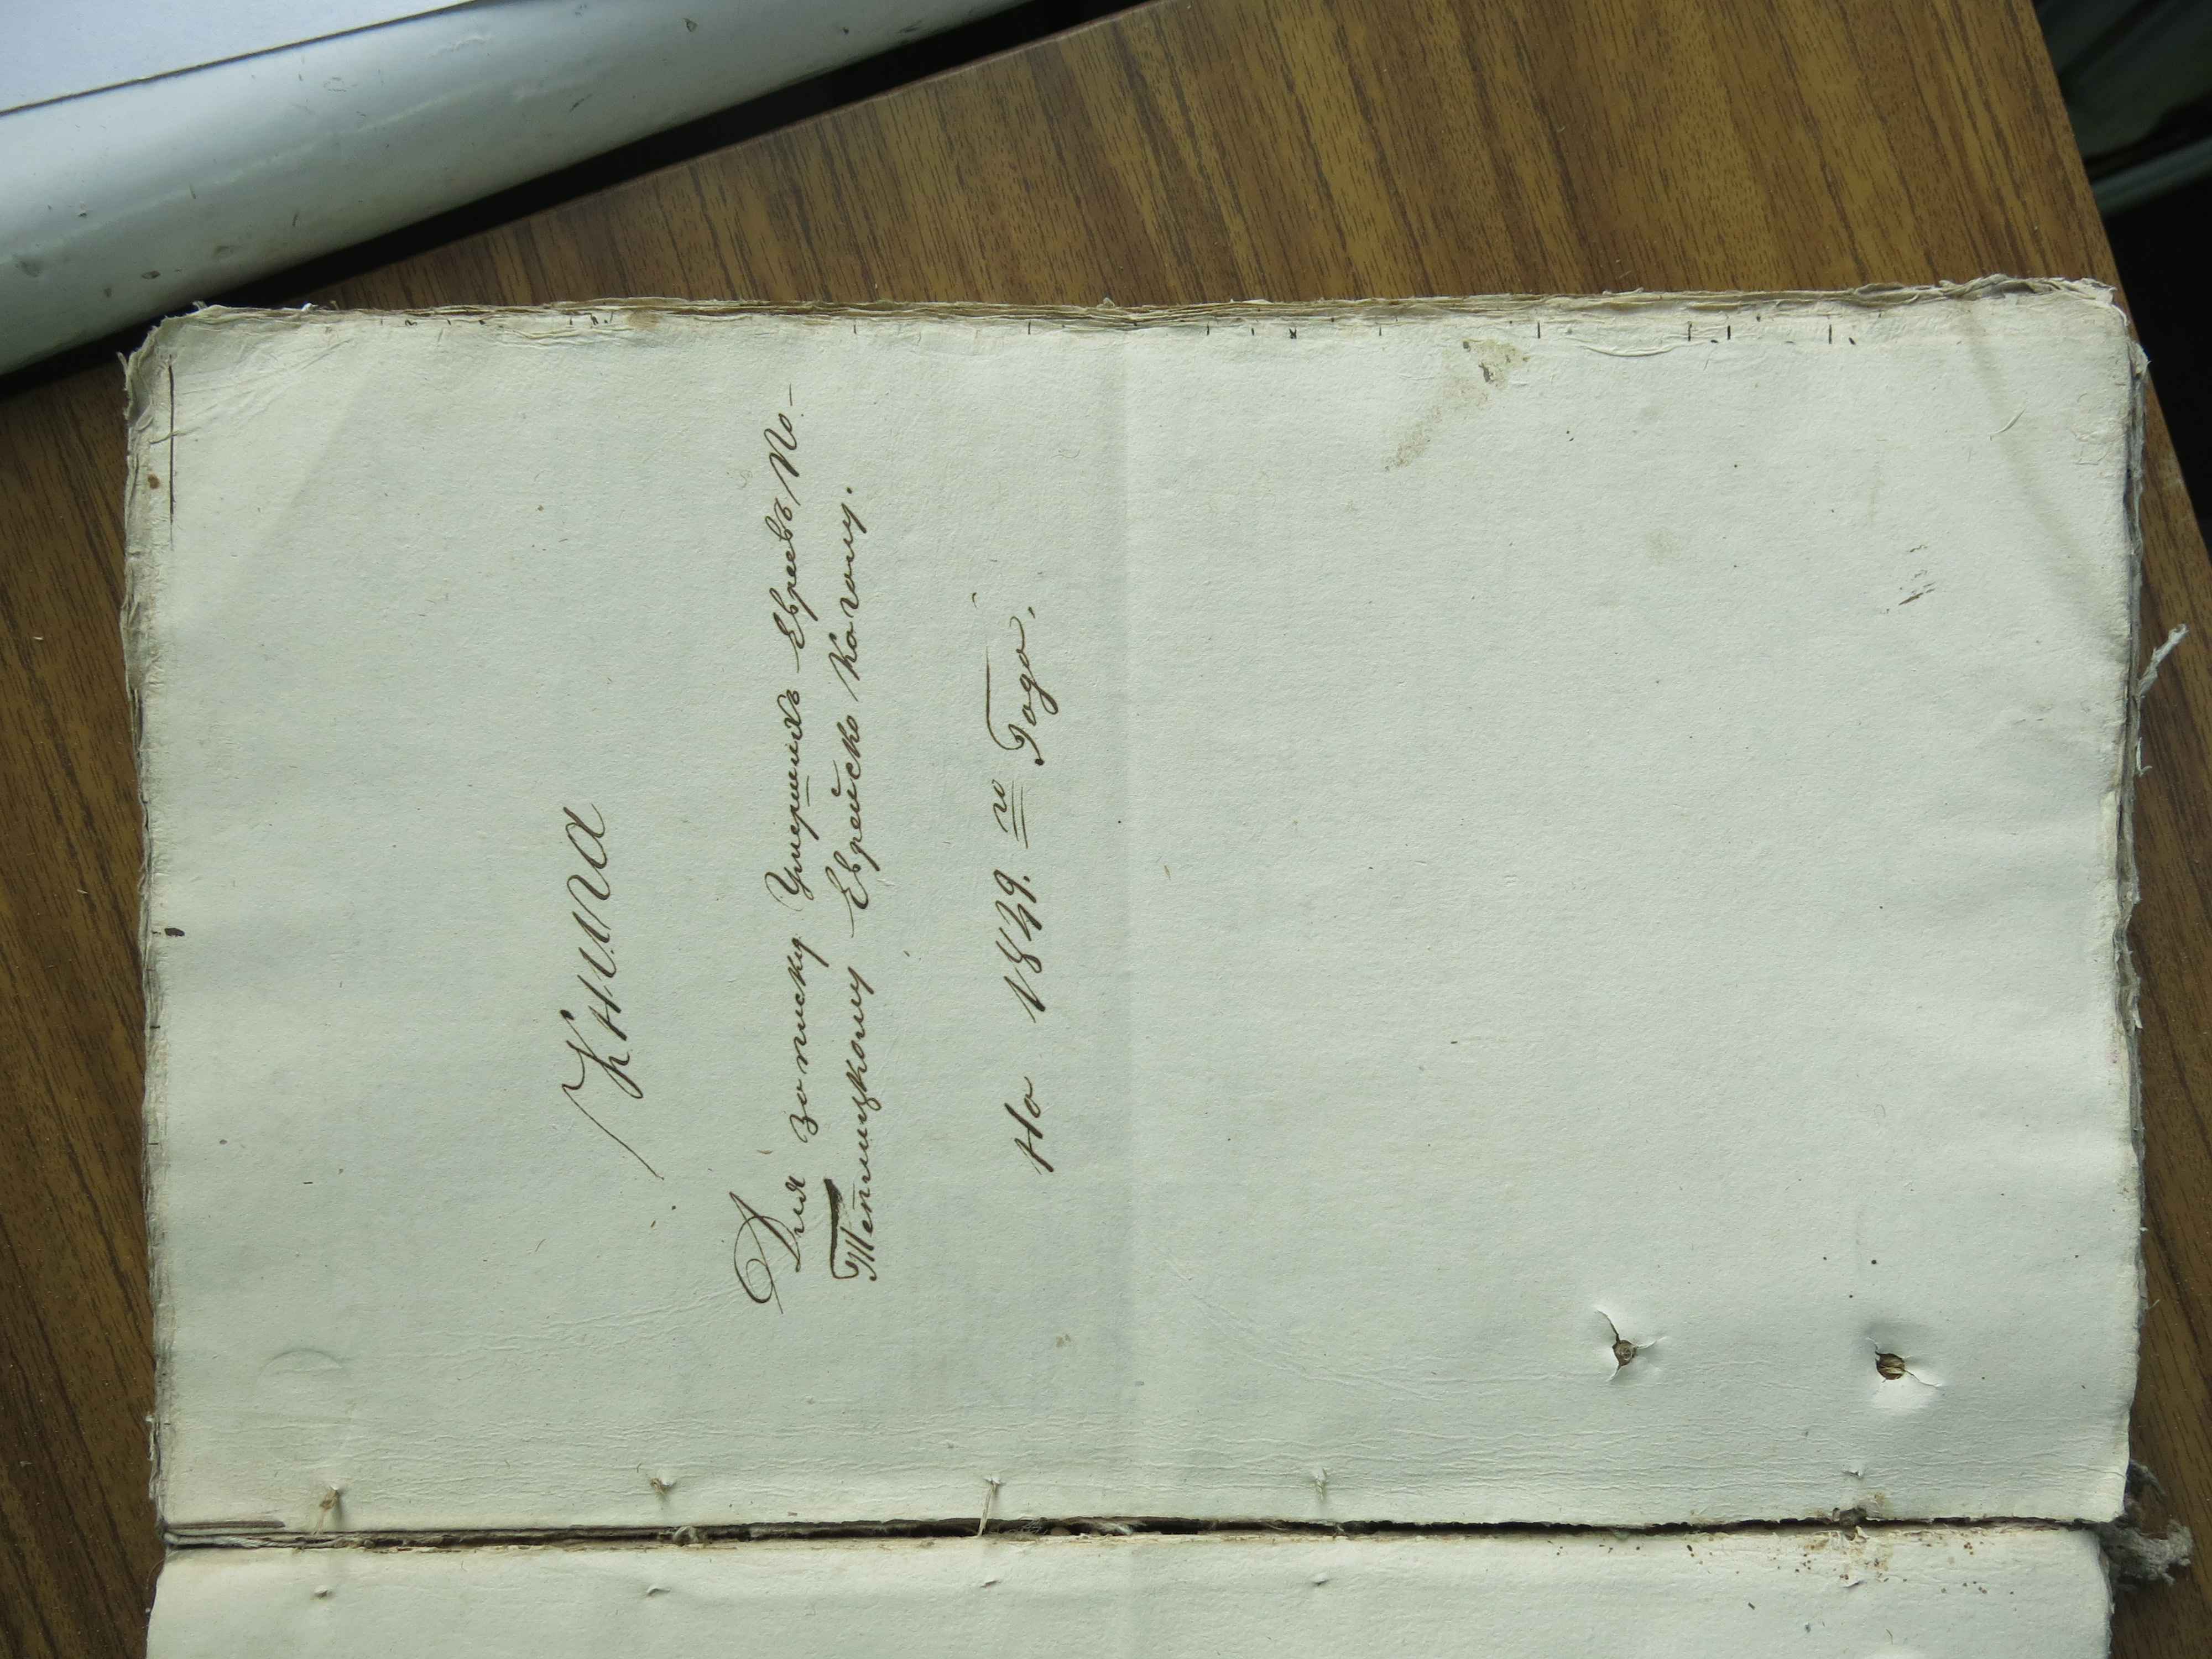 Книга
Для записки Умершихъ Евреевъ По-
Теплицкому Еврейско Кагалу.
На 1849. го Года.